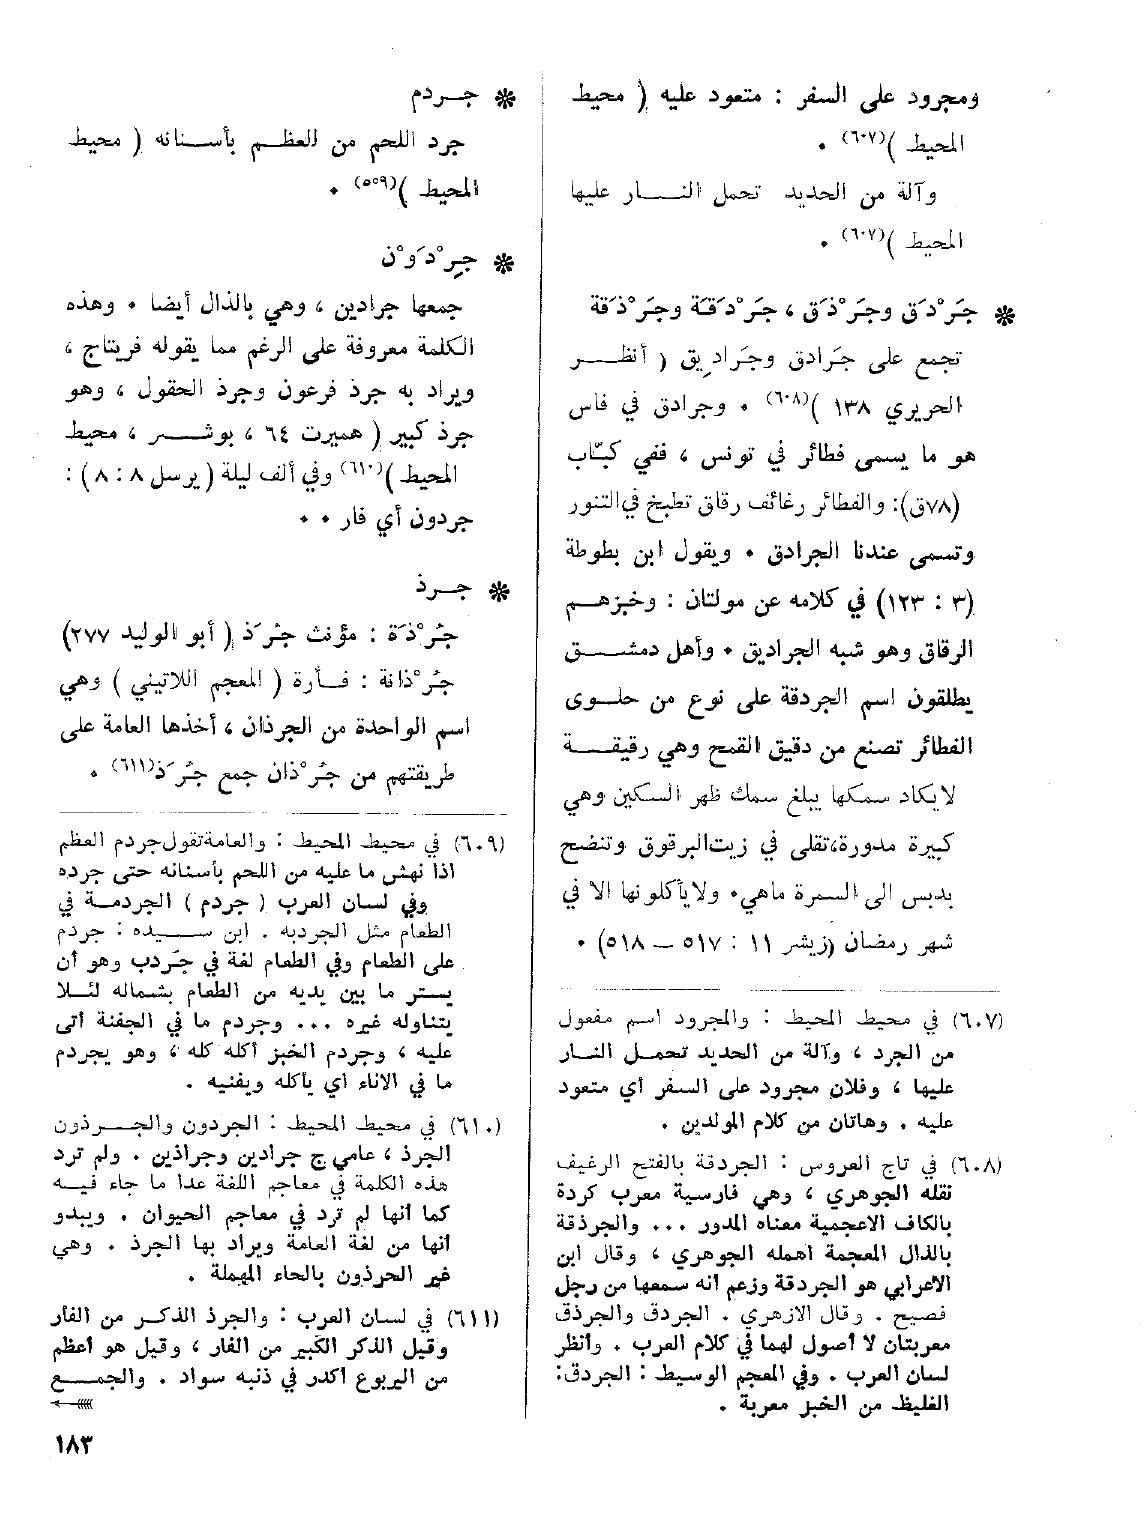 ومجرود على السفر : متعود عليه ( محيط
المحيط )(٦٠٧) ٠
وآلة من الحديد تحمل النـــار عليها
المحيط )(٦٠٧) ٠
❋ جَرْدَق وجَرْذَق ، جَرْدَقَة وجَرْذَقة
تجمع على جَرادق وجَرادِيق ( أنظـــر
الحريري ١٣٨ )(٦٠٨) ٠ وجرادق في فاس
هو ما يسمى فطائر في تونس ، ففي كبّاب
(٧٨ق): والفطائر رغائف رقاق تطبخ في التنور
وتسمى عندنا الجرادق ٠ ويقول ابن بطوطة
(٣ : ١٢٣) في كلامه عن مولتان : وخبزهــم
الرقاق وهو شبه الجراديق ٠ وأهل دمشـــق
يطلقون اسم الجردقة على نوع من حلــوى
الفطائر تصنع من دقيق القمح وهي رقيقـــة
لايكاد سمكها يبلغ سمك ظهر السكين وهي
كبيرة مدورة،تقلى في زيت البرقوق وتنضح
بدبس الى السمرة ماهي٠ ولايأكلونها الا في
شهر رمضان (زيشر ١١ : ٥١٧ – ٥١٨) ٠
(٦٠٧) في محيط المحيط : والمجرود اسم مفعول
من الجرد ، وآلة من الحديد تحمــل النــار
عليها ، وفلان مجرود على السفر أي متعود
عليه . وهاتان من كلام المولدين .
(٦٠٨) في تاج العروس : الجردقة بالفتح الرغيف
نقله الجوهري ، وهي فارسية معرب كردة
بالكاف الاعجمية معناه المدور ... والجرذقة
بالذال المعجمة اهمله الجوهري ، وقال ابن
الاعرابي هو الجردقة وزعم أنه سمعها من رجل
فصيح . وقال الازهري . الجردق والجرذق
معربتان لا أصول لهما في كلام العرب . وأنظر
لسان العرب . وفي المعجم الوسيط : الجردق:
الغليظ من الخبز معربة .
❋ جــردم
جرد اللحم من العظــم بأســنانه ( محيط
المحيط )(٥٥٩) ٠
❋ جِرْدَوْن
جمعها جرادين ، وهي بالذال أيضا ٠ وهذه
الكلمة معروفة على الرغم مما يقوله فريتاج ،
ويراد به جرذ فرعون وجرذ الحقول ، وهو
جرذ كبير ( همبرت ٦٤ ، بوشـــر ، محيط
المحيط )(٦١٠) وفي ألف ليلة ( يرسل ٨ : ٨ ) :
جردون أي فار ٠ ٠
❋ جــرذ
جُرْذَة : مؤنث جُرَذ ( أبو الوليد ٢٧٧)
جُرْذانة : فــأرة ( المعجم اللاتيني ) وهي
اسم الواحدة من الجرذان ، أخذها العامة على
طريقتهم من جُرْذان جمع جُرَذ(٦١١) ٠
(٦٠٩) في محيط المحيط : والعامة تقول جردم العظم
اذا نهش ما عليه من اللحم بأسنانه حتى جرده
وفي لسان العرب ( جردم ) الجردمــة في
الطعام مثل الجردبه . ابن ســـيده : جردم
على الطعام وفي الطعام لغة في جَردب وهو أن
يســتر ما بين يديه من الطعام بشماله لئــلا
يتناوله غيره ... وجردم ما في الجفنة أتى
عليه ، وجردم الخبز أكله كله ، وهو يجردم
ما في الاناء أي يأكله ويفنيه .
(٦١٠) في محيط المحيط : الجردون والجــرذون
الجرذ ، عامي ج جرادين وجراذين . ولم ترد
هذه الكلمة في معاجم اللغة عدا ما جاء فيــه
كما أنها لم ترد في معاجم الحيوان . ويبدو
أنها من لغة العامة ويراد بها الجرذ . وهي
غير الحرذون بالحاء المهملة .
(٦١١) في لسان العرب : والجرذ الذكــر من الفأر
وقيل الذكر الكبير من الفار ، وقيل هو أعظم
من اليربوع أكدر في ذنبه سواد . والجمـــع
١٨٣